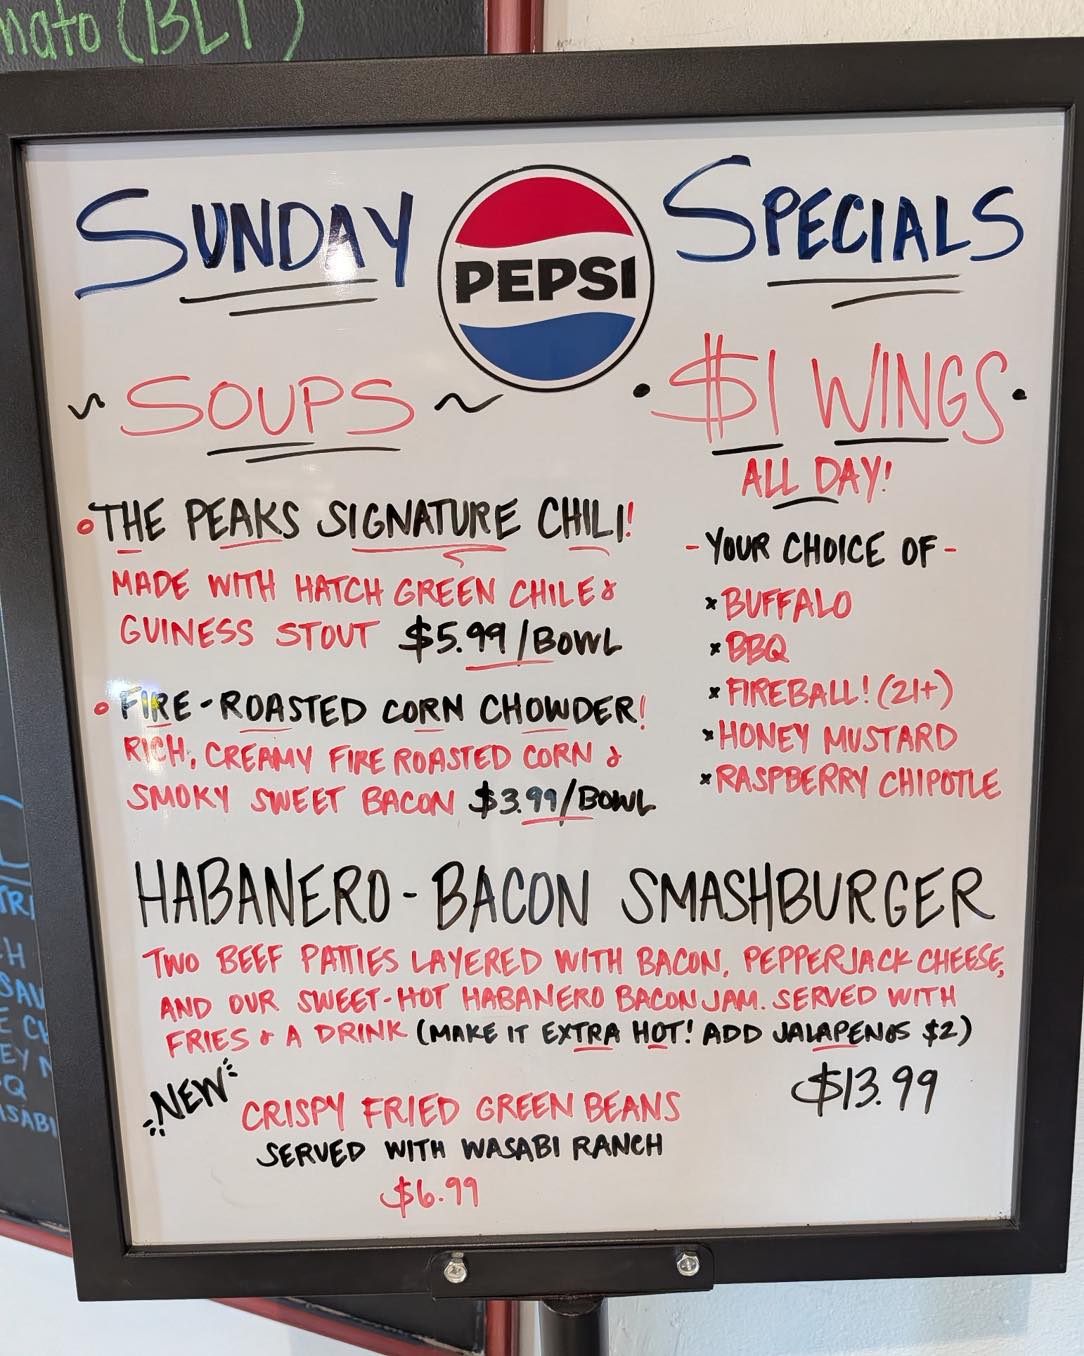 mato (BLT)
SUNDAY SPECIALS
PEPSI
~ SOUPS ~
THE PEAKS SIGNATURE CHILI!
MADE WITH HATCH GREEN CHILE &
GUINESS STOUT $5.99/BOWL
FIRE-ROASTED CORN CHOWDER!
RICH, CREAMY FIRE ROASTED CORN &
SMOKY SWEET BACON $3.99/BOWL
• $1 WINGS •
ALL DAY!
- YOUR CHOICE OF -
× BUFFALO
× BBQ
× FIREBALL! (21+)
× HONEY MUSTARD
× RASPBERRY CHIPOTLE
HABANERO-BACON SMASHBURGER
TWO BEEF PATTIES LAYERED WITH BACON, PEPPERJACK CHEESE,
AND OUR SWEET-HOT HABANERO BACON JAM. SERVED WITH
FRIES & A DRINK (MAKE IT EXTRA HOT! ADD JALAPENOS $2)
$13.99
NEW
CRISPY FRIED GREEN BEANS
SERVED WITH WASABI RANCH
$6.99